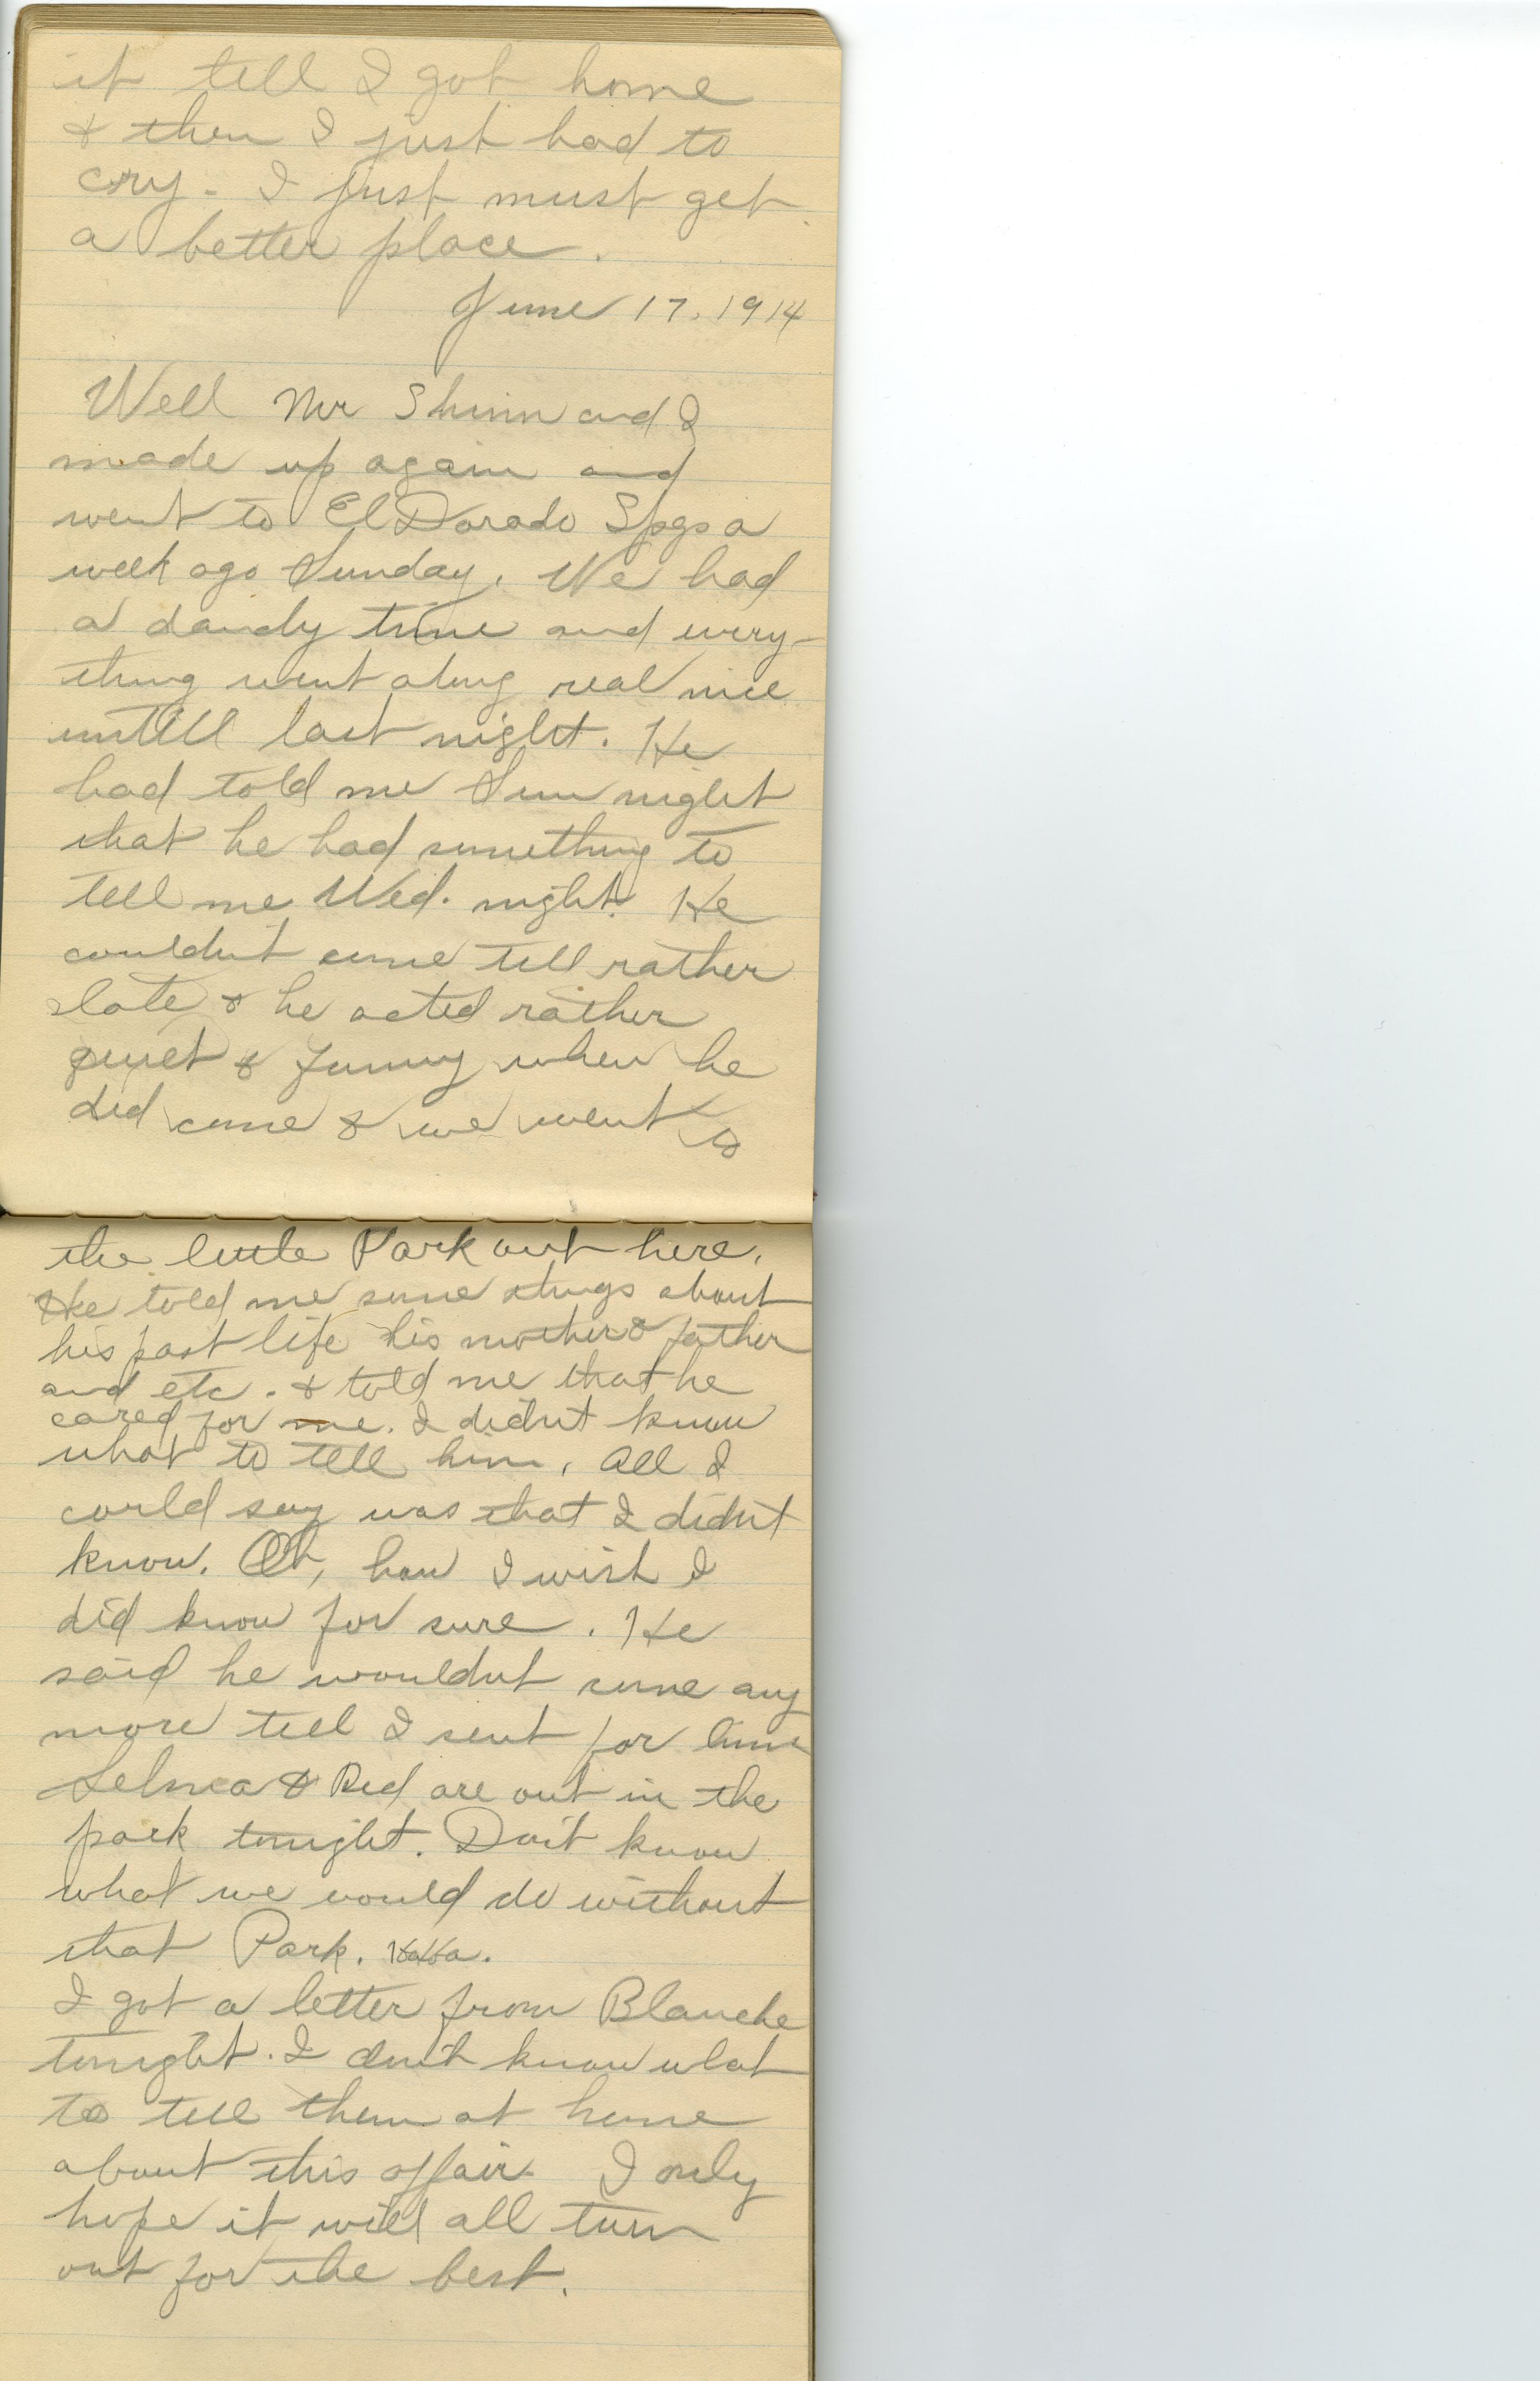 it till I got home
& then I just had to
cry - I just must get
a better place.
June 17, 1914
Well Mr Shinn and I
made up again and
went to El Dorado Spgs a
week ago Sunday. We had
a dandy time and every-
thing went along real nice
untill last night. He
had told me Sun night
that he had something to
tell me Wed. night. He
couldnt come till rather
late & he acted rather
quiet & funny when he
did come & we went to
the little Park out here.
He told me some things about
his past life his mother & father
and etc. & told me that he
cared for me. I didnt know
what to tell him. All I
could say was that I didn't
know. Oh, how I wish I
did know for sure. He
said he wouldnt come any
more till I sent for him
Selma & Red are out in the
park tonight. Don't know
what we would do without
that Park. HaHa.
I got a letter from Blanche
tonight. I don't know what
to tell them at home
about this affair. I only
hope it will all turn
out for the best.